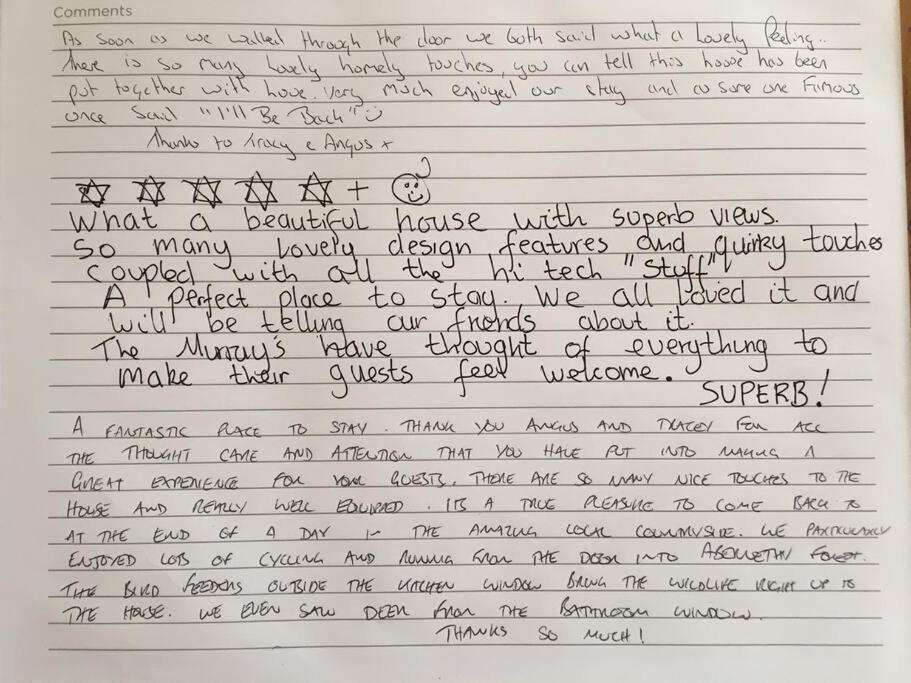 Comments
As soon as we walked through the door we both said what a lovely feeling..
There is so many lovely homely touches, you can tell this house has been
put together with love. Very much enjoyed our stay and as some one Famous
once said "I'll Be Back"
Thanks to Tracy & Angus x
+
What a beautiful house with superb views.
So many lovely design features and quirky touches
coupled with all the hi tech "stuff"
A perfect place to stay. We all loved it and
will be telling our frends about it.
The Murray's have thought of everything to
make their guests feel welcome.
SUPERB!
A FANTASTIC PLACE TO STAY. THANK YOU ANGUS AND TRACEY FOR ALL
THE THOUGHT CARE AND ATTENTION THAT YOU HAVE PUT INTO MAKING A
GREAT EXPERIENCE FOR YOUR GUESTS. THERE ARE SO MANY NICE TOUCHES TO THE
HOUSE AND REALLY WELL EQUIPPED. ITS A TRUE PLEASURE TO COME BACK TO
AT THE END OF A DAY IN THE AMAZING LOCAL COUNTRYSIDE. WE PARTICULARLY
ENJOYED LOTS OF CYCLING AND RUNNING FROM THE DOOR INTO ABERNETHY FOREST.
THE BIRD FEEDERS OUTSIDE THE KITCHEN WINDOW BRING THE WILDLIFE RIGHT UP TO
THE HOUSE. WE EVEN SAW DEER FROM THE BATHROOM WINDOW.
THANKS SO MUCH!